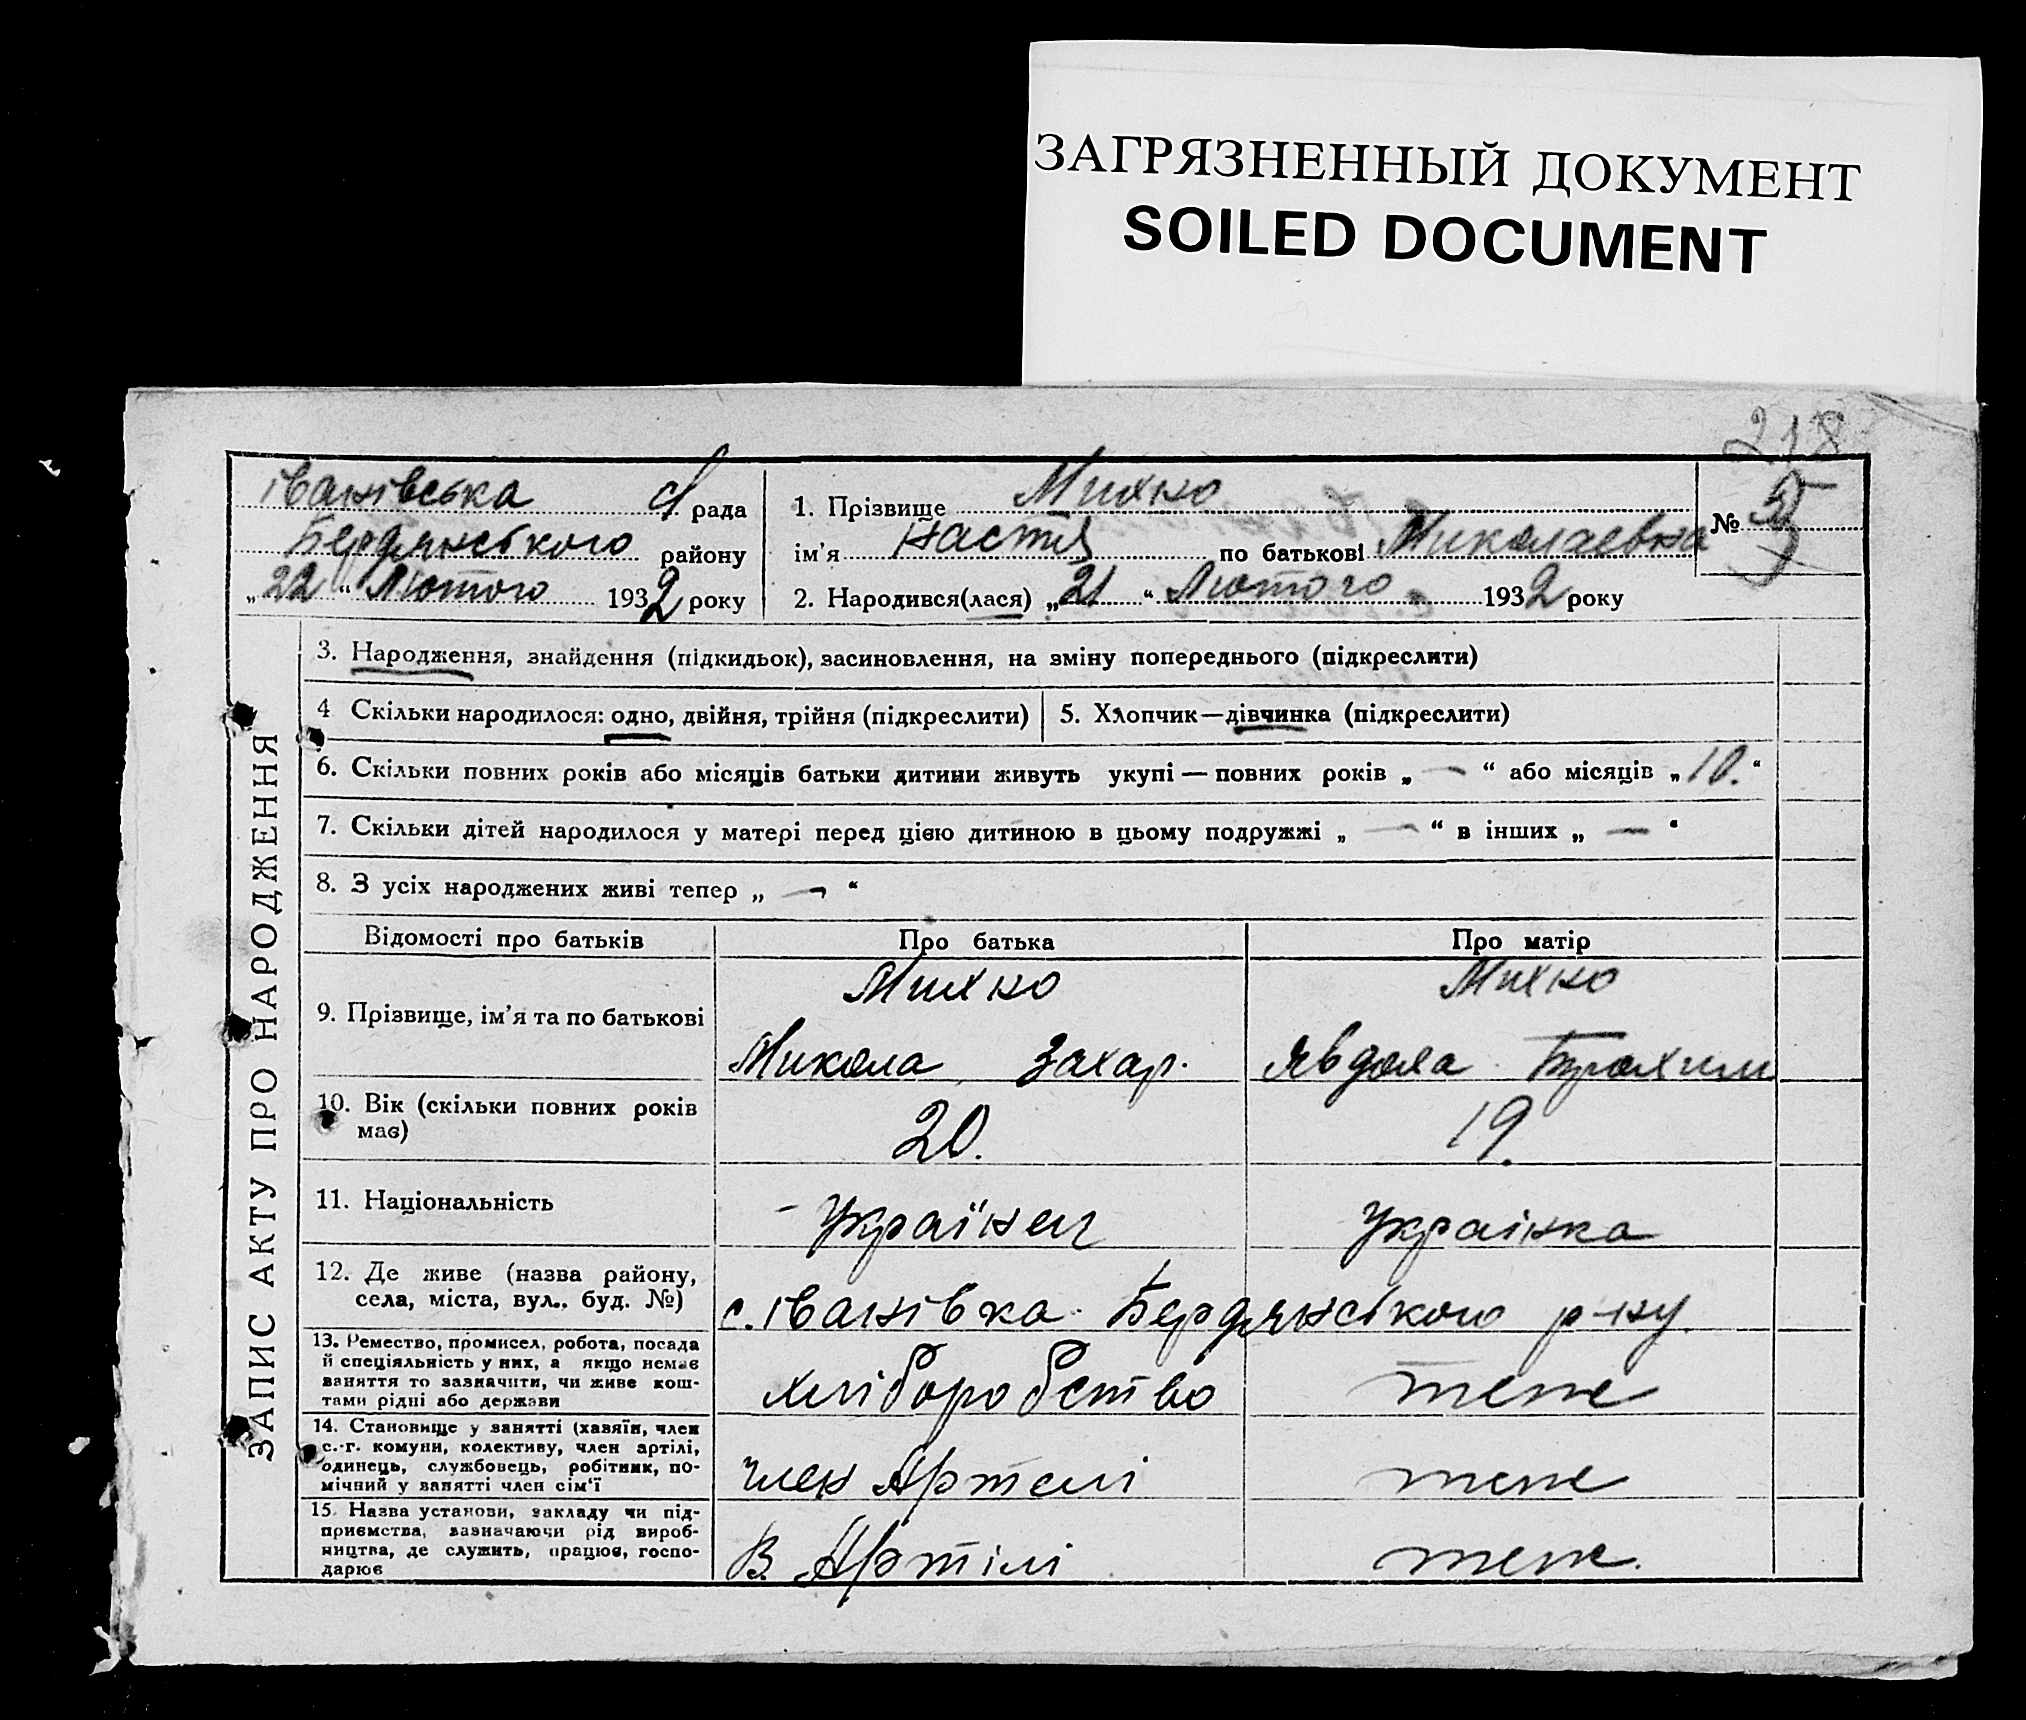 ЗАГРЯЗНЕННЫЙ ДОКУМЕНТ
SOILED DOCUMENT
218
ЗАПИС АКТУ ПРО НАРОДЖЕННЯ
Іванівська с/рада
Бердянського району
„22“ Лютого 1932 року
1. Прізвище Михно
ім'я Настя по батькові Миколаевна
№ 5
2. Народився(лася) „21“ Лютого 1932 року
3. Народження, знайдення (підкидьок), засиновлення, на зміну попереднього (підкреслити)
4 Скільки народилося: одно, двійня, трійня (підкреслити)
5. Хлопчик—дівчинка (підкреслити)
6. Скільки повних років або місяців батьки дитини живуть укупі — повних років „ — “ або місяців „10.“
7. Скільки дітей народилося у матері перед цією дитиною в цьому подружжі „ — “ в інших „ — “
8. З усіх народжених живі тепер „ — “
Відомості про батьків Про батька Про матір
9. Прізвище, ім'я та по батькові
Михно
Микола Захар.
Михно
Явдоха
10. Вік (скільки повних років
має)
20.
19.
11. Національність
Українец
Українка
12. Де живе (назва району,
села, міста, вул., буд. №)
с. Іванівка Бердянського р-ну
13. Ремество, промисел, робота, посада
й спеціяльність у них, а якщо немає
заняття то зазначити, чи живе кош-
тами рідні або держави
хліборобство
теже
14. Становище у занятті (хазяїн, член
с.-г. комуни, колективу, член артілі,
одинець, службовець, робітник, по-
мічний у занятті член сім'ї
член Артелі
теже
15. Назва установи, закладу чи під-
приємства, зазначаючи рід вироб-
ництва, де служить, працює, госпо-
дарює
В Артілі
теже.